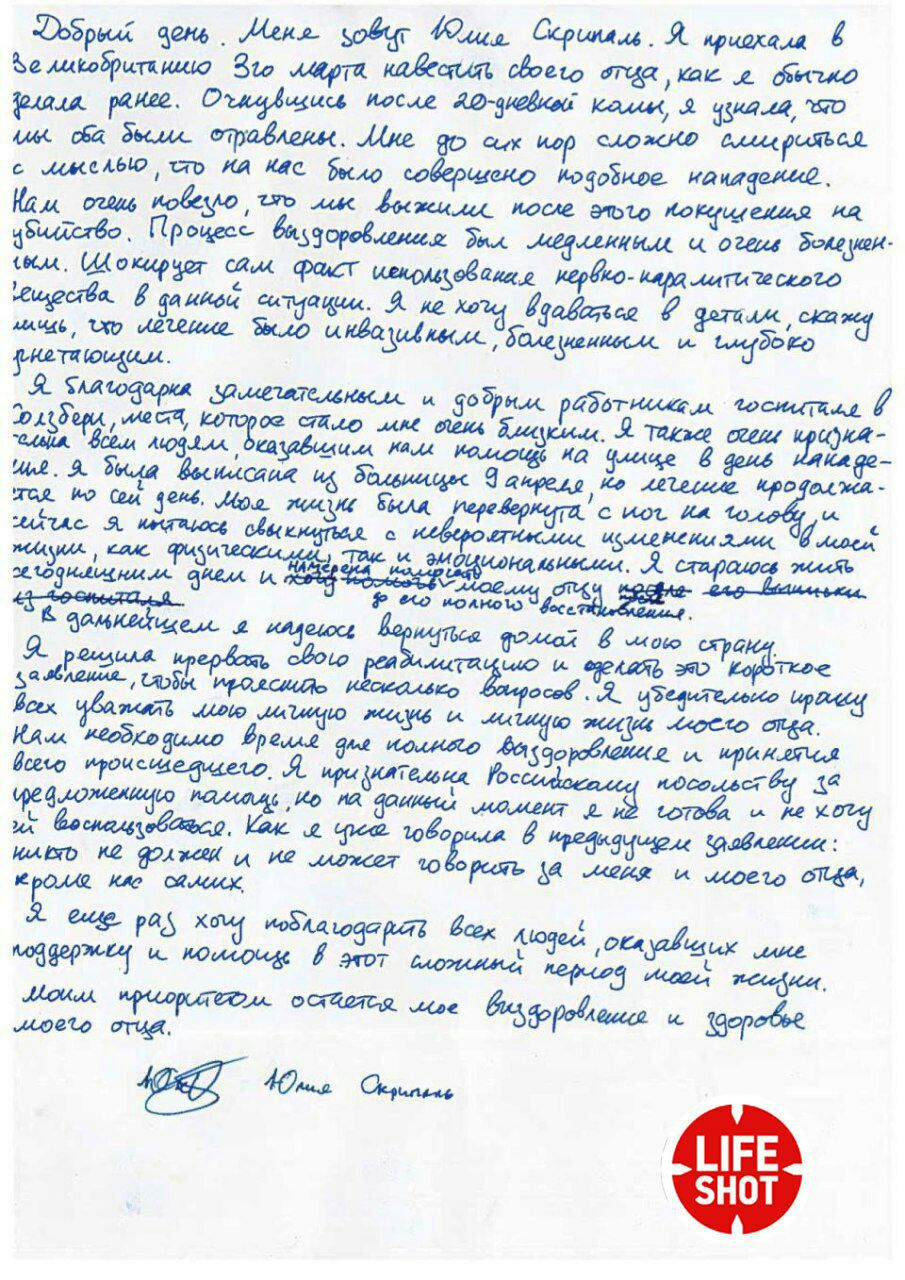 Добрый день. Меня зовут Юлия Скрипаль. Я приехала в
Великобританию 3го марта навестить своего отца, как я обычно
делала ранее. Очнувшись после 20-дневной комы, я узнала, что
мы оба были отравлены. Мне до сих пор сложно смириться
с мыслью, что на нас было совершено подобное нападение.
Нам очень повезло, что мы выжили после этого покушения на
убийство. Процесс выздоровления был медленным и очень болезнен-
ным. Шокирует сам факт использования нервно-паралитического
вещества в данной ситуации. Я не хочу вдаваться в детали, скажу
лишь, что лечение было инвазивным, болезненным и глубоко
угнетающим.
Я благодарна замечательным и добрым работникам госпиталя в
Солзбери, места, которое стало мне очень близким. Я также очень призна-
тельна всем людям, оказавшим нам помощь на улице в день нападе-
ния. Я была выписана из больницы 9 апреля, но лечение продолжа-
ется по сей день. Моя жизнь была перевернута с ног на голову, и
сейчас я пытаюсь свыкнуться с невероятными изменениями в моей
жизни, как физическими, так и эмоциональными. Я стараюсь жить
намерена помогать
сегодняшним днем и хочу помочь моему отцу после его выписки
из госпиталя до его полного восстановления.
В дальнейшем я надеюсь вернуться домой в мою страну.
Я решила прервать свою реабилитацию и сделать это короткое
заявление, чтобы прояснить несколько вопросов. Я убедительно прошу
всех уважать мою личную жизнь и личную жизнь моего отца.
Нам необходимо время для полного выздоровления и принятия
всего происшедшего. Я признательна Российскому посольству за
предложенную помощь, но на данный момент я не готова и не хочу
ей воспользоваться. Как я уже говорила в предыдущем заявлении:
никто не должен и не может говорить за меня и моего отца,
кроме нас самих.
Я еще раз хочу поблагодарить всех людей, оказавших мне
поддержку и помощь в этот сложный период моей жизни.
Моим приоритетом остается мое выздоровление и здоровье
моего отца.
Юлия Скрипаль
LIFE
SHOT